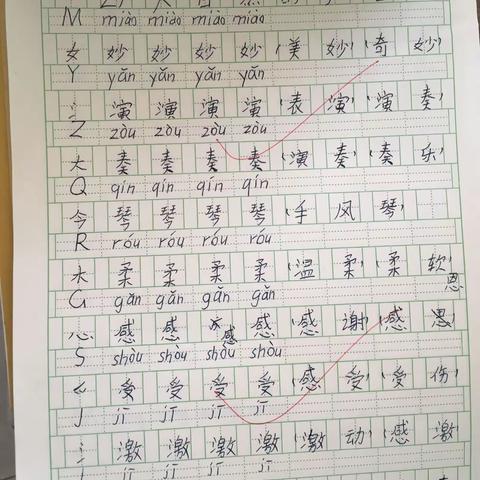 M miào miào miào miào
女 妙 妙 妙 妙 (美 妙)(奇 妙)
Y yǎn yǎn yǎn yǎn
氵 演 演 演 演 (表 演)(演 奏)
Z zòu zòu zòu zòu
大 奏 奏 奏 奏 (演 奏)(奏 乐)
Q qín qín qín qín
今 琴 琴 琴 琴 (手 风 琴)
R róu róu róu róu
木 柔 柔 柔 柔 (温 柔)(柔 软)
G gǎn gǎn gǎn gǎn
恩
心 感 感 感 感 (感 谢)(感 恩)
S shòu shòu shòu shòu
爫 受 受 受 受 (感 受)(受 伤)
J jī jī jī jī
氵 激 激 激 激 (激 动)(感 激)
jī jī jī jī